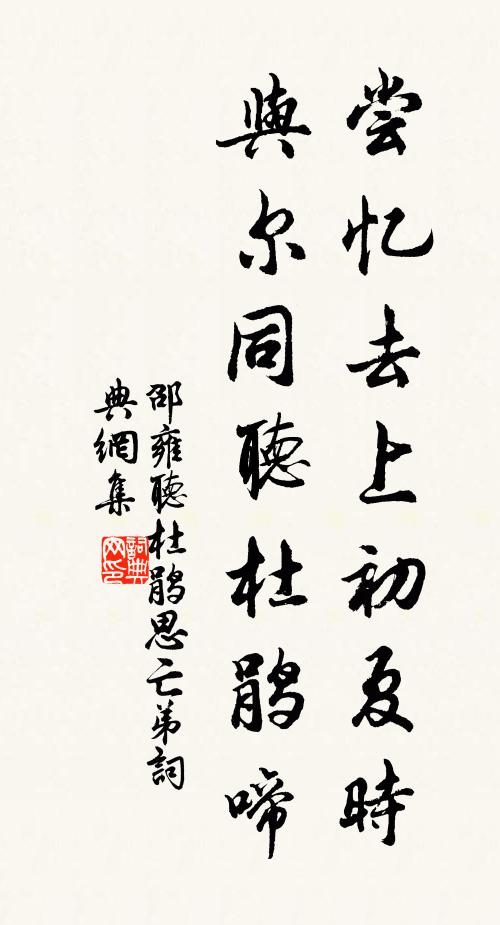 尝忆去上初夏時
與尔同聽杜鹃啼
邵雍聽杜鹃思亡弟詞
典網集
詞典
网印